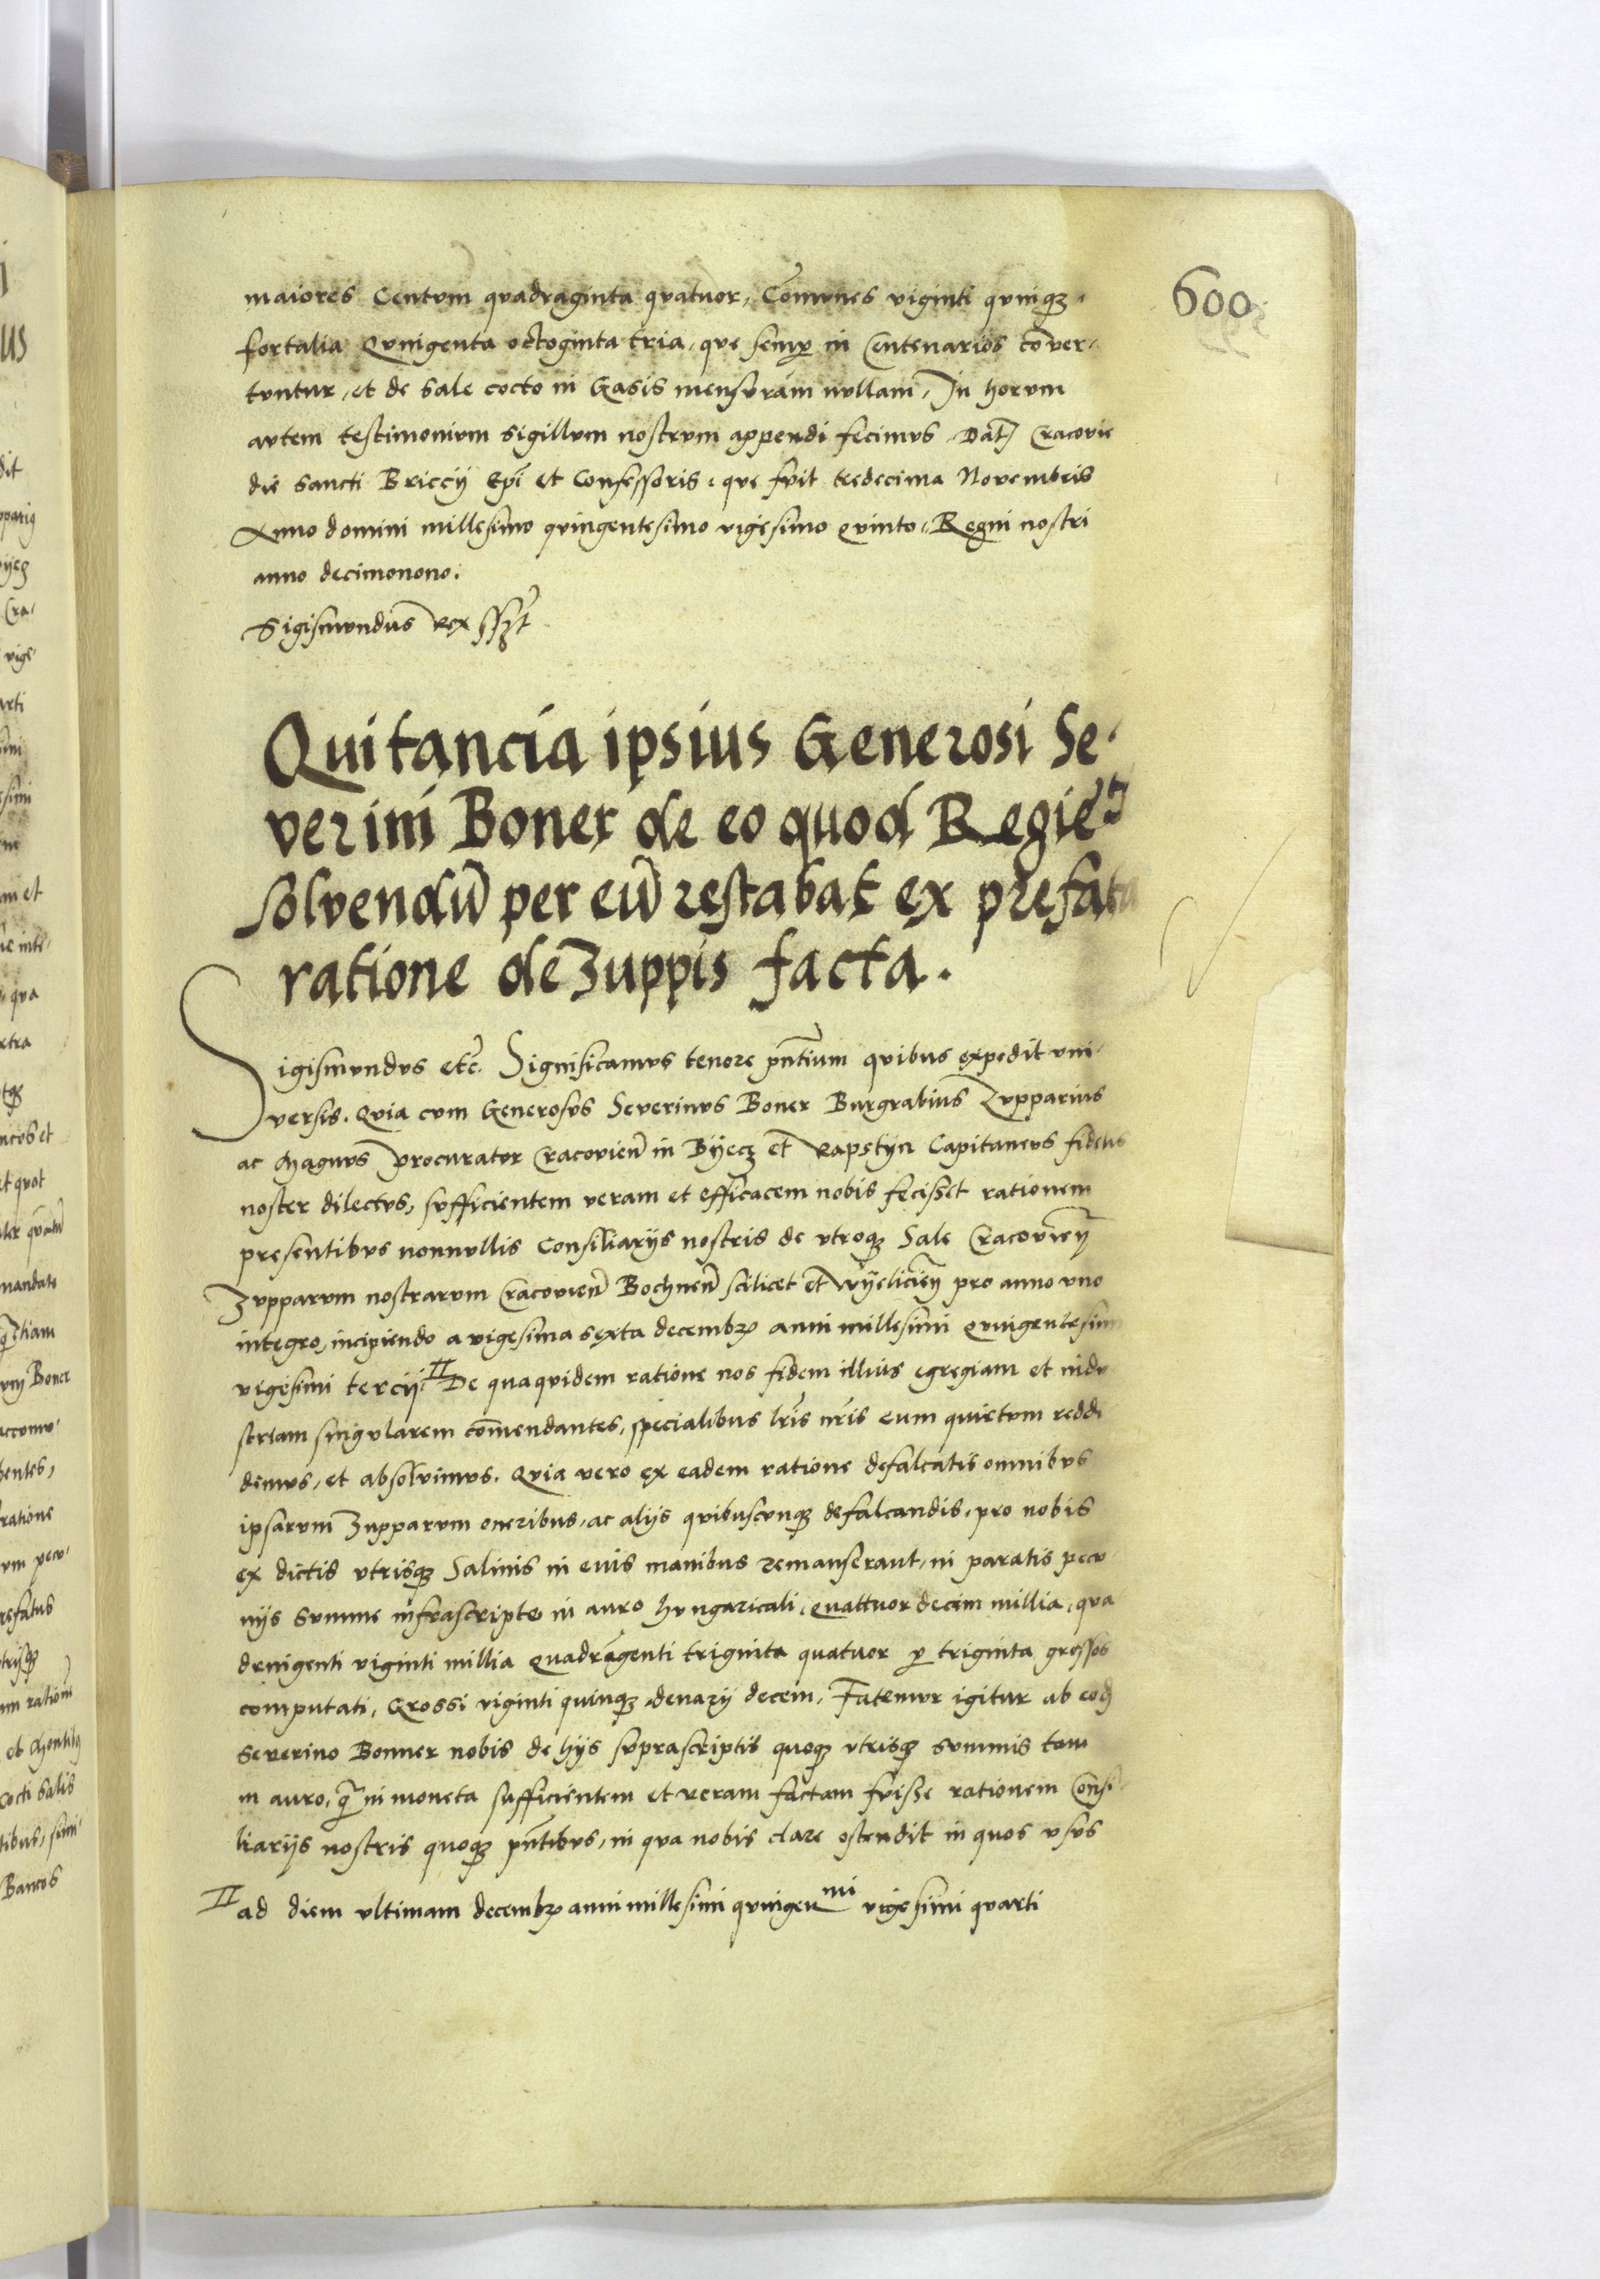 600
maiores Centum quadraginta quatuor, Com̄unes viginti quinqȝ
fortalia Quingenta octoginta tria, que semꝑ in Centenarios cōver-
tuntur, et de sale cocto in Gasis mensuram nullam, In horum
autem testimonium sigillum nostrum appendi fecimus. Dat̄ Cracovie
die sancti Briccij Epī et Confessoris, que fuit tredecima Novembris
Anno domini millesimo quingentesimo vigesimo quinto, Regni nostri
anno decimonono.
Sigismundus Rex sszt
Quitancia ipsius Generosi Se-
verini Boner de eo quod Regie
solvendū per eū restabat ex prefata
ratione de Zuppis facta.
Sigismundus etc̄. Significamus tenore pn̄tium quibus expedit uni-
versis. Quia cum Generosus Severinus Boner Burgrabius Zupparius
ac Magnus Procurator Cracovien̄ in Byecz et Rapstyn Capitaneus fidelis
noster dilectus, sufficientem veram et efficacem nobis fecisset rationem
presentibus nonnullis Consiliarijs nostris de utroqȝ Sale Cracovien̄
Zupparum nostrarum Cracovien̄ Bochnen̄ scilicet et Wyelicien̄ pro anno uno
integro, incipiendo a vigesima sexta decembȝ anni millesimi quingentesimi
vigesimi tercij II De quaquidem ratione nos fidem illius egregiam et indu
striam singularem com̄endantes, specialibus lr̄is nr̄is eum quietum reddi
dimus, et absolvimus. Quia vero ex eadem ratione defalcatis omnibus
ipsarum Zupparum oneribus, ac alijs quibuscunqȝ defalcandis, pro nobis
ex dictis utrisqȝ Salinis in euis manibus remanserant, in paratis pecu
nijs summe infrascripte in auro hungaricali, quattuordecim millia, qua
dringenti viginti millia quadringenti triginta quatuor ꝑ triginta grossos
computati, Grossi viginti quinqȝ denarij decem, Fatemur igitur ab eodē
Severino Bonner nobis de hijs suprascriptis quoqȝ utrisqȝ summis tam
in auro, q̄ in moneta sufficientem et veram factam fuisse rationem Consi
liarijs nostris quoqȝ pn̄tibus, in qua nobis clare ostendit in quos usus
II ad diem ultimam decembȝ anni millesimi quingen̄mi vigesimi quarti